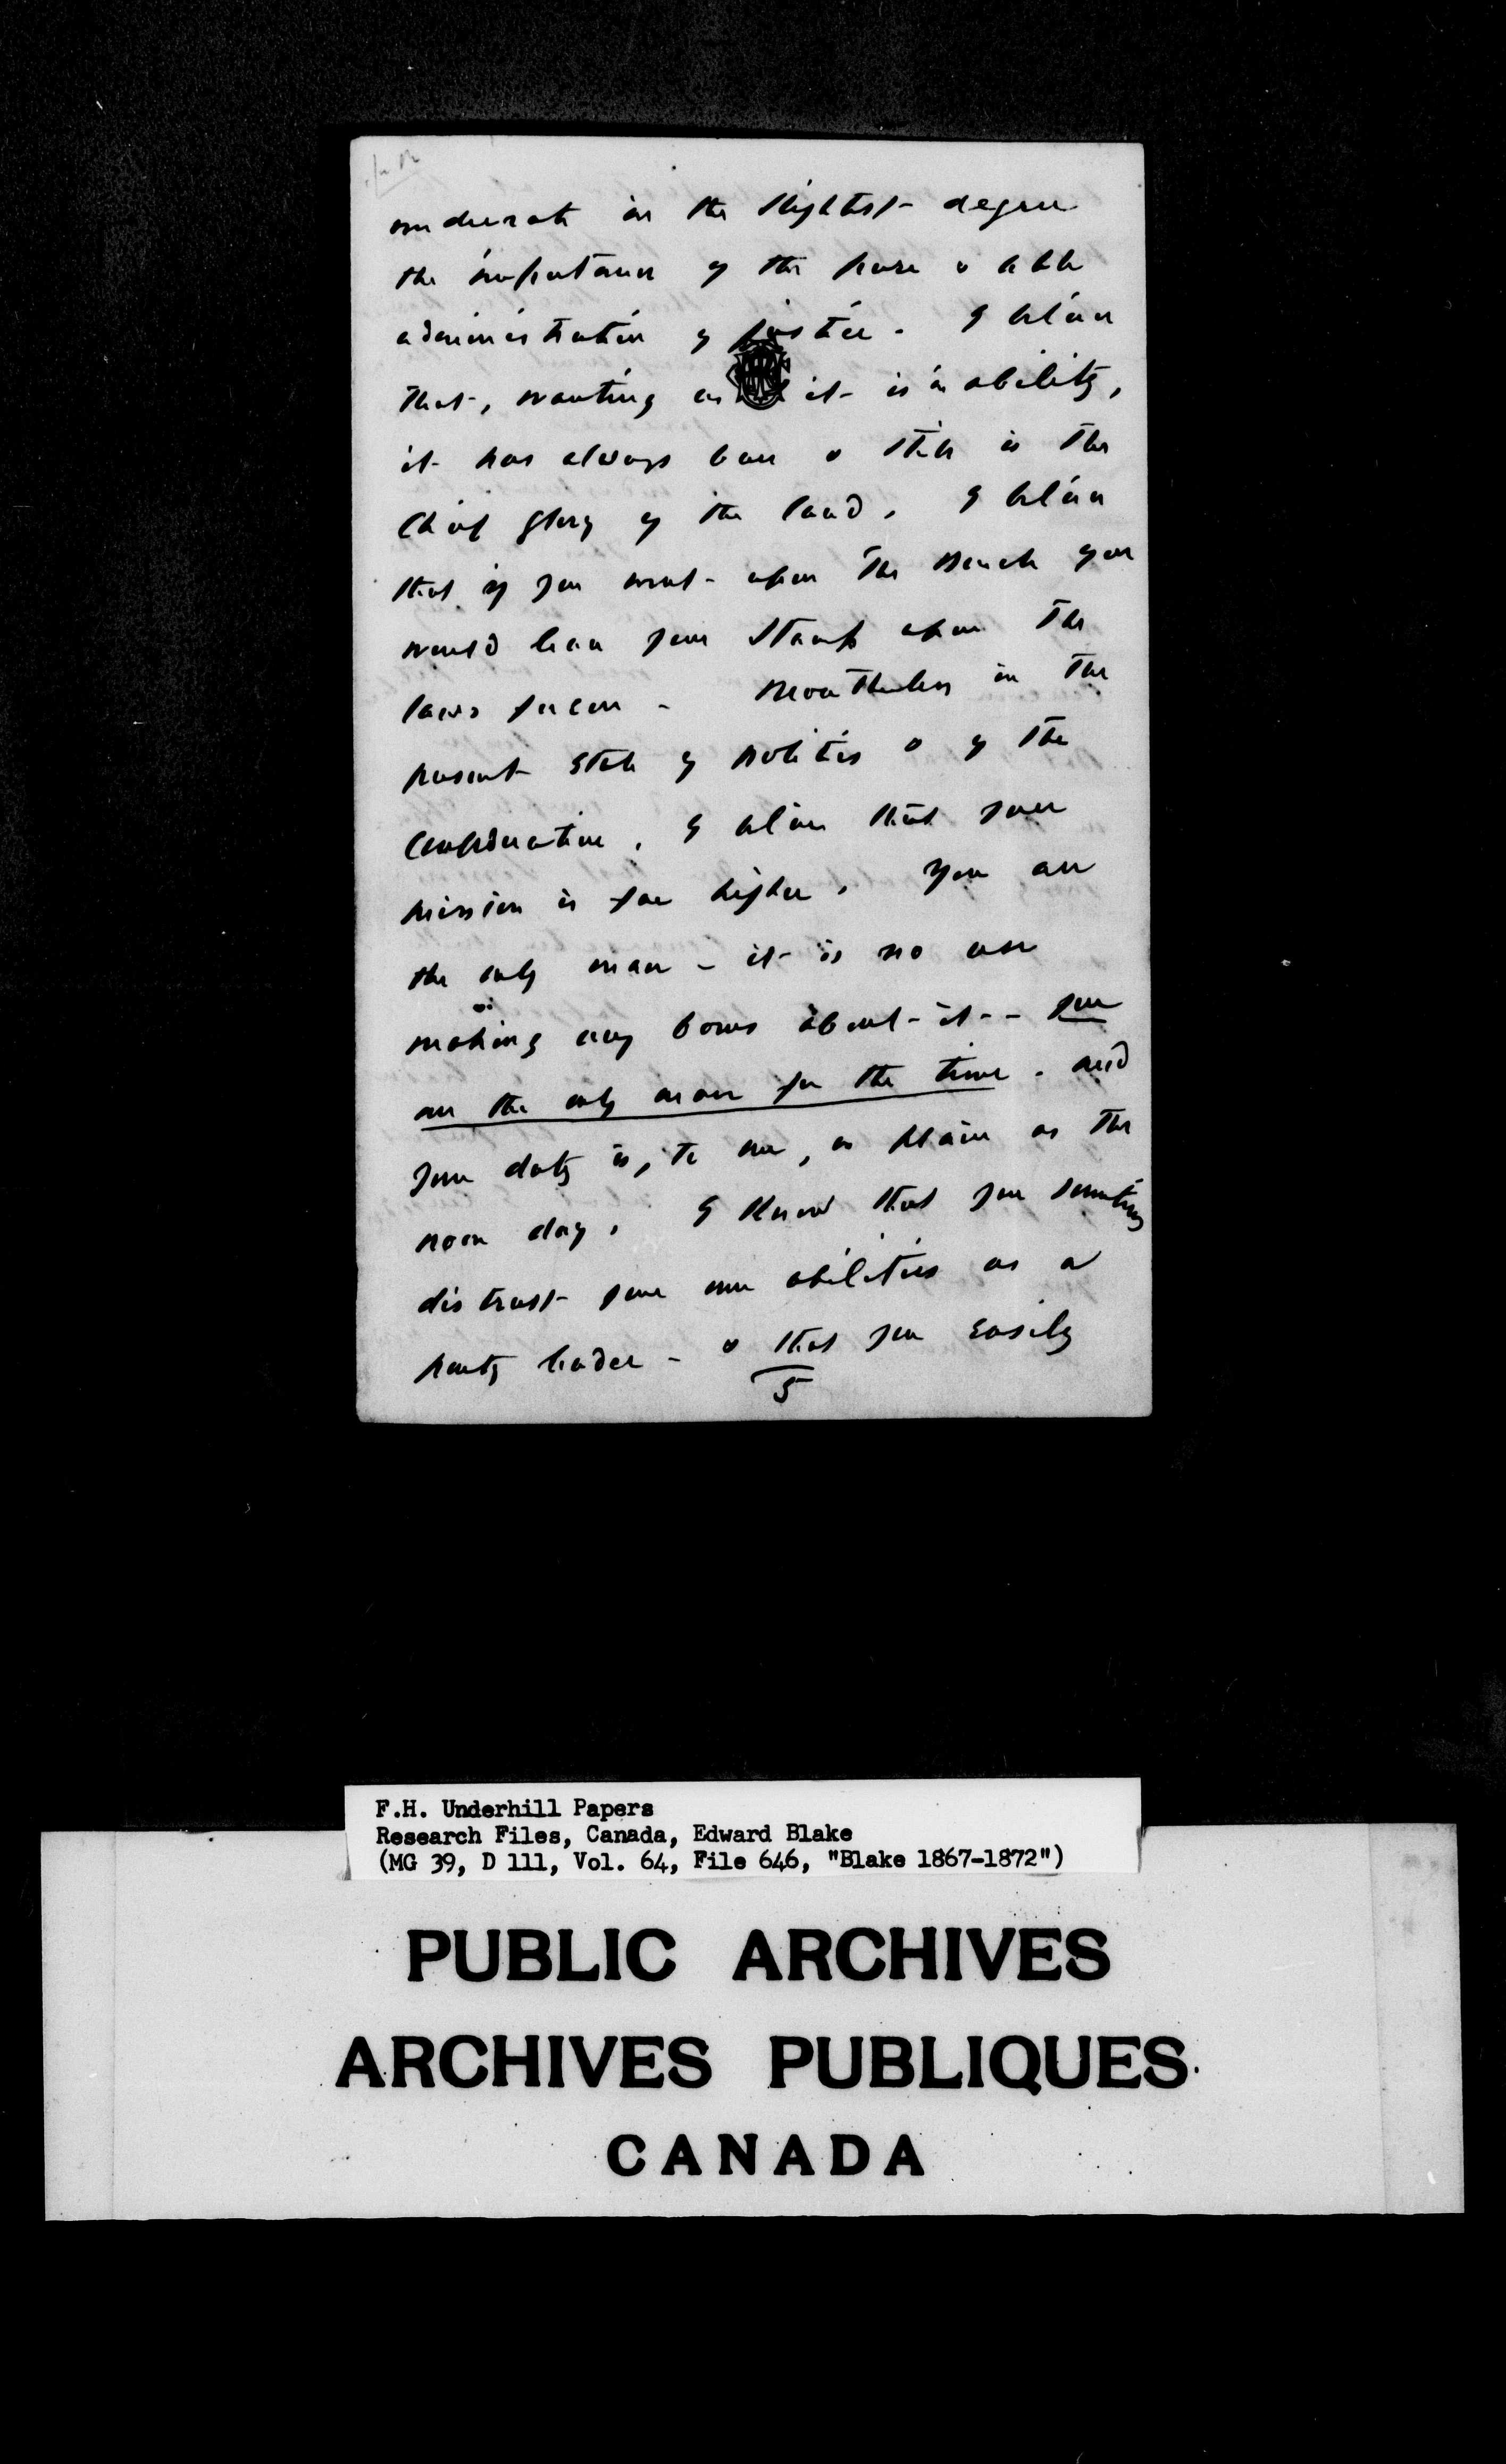 underrate in the slightest degree
the importance of the pure & able
administration of justice. I believe
that, wanting as it is in ability,
it has always been & still is the
chief glory of the land. I believe
that if you went upon the Bench you
would leave your stamp upon the
laws forever. Nevertheless in the
present state of politics & of the
Confederation, I believe that your
mission is far higher. You are
the only man - it is no use
making any bones about it - you
are the only man for the time. And
your duty is, to me, as plain as the
noon day. I know that you sometimes
distrust your own abilities as a
party leader - & that you easily
5
F.H. Underhill Papers
Research Files, Canada, Edward Blake
(MG 39, D 111, Vol. 64, File 646, "Blake 1867-1872")
PUBLIC ARCHIVES
ARCHIVES PUBLIQUES
CANADA